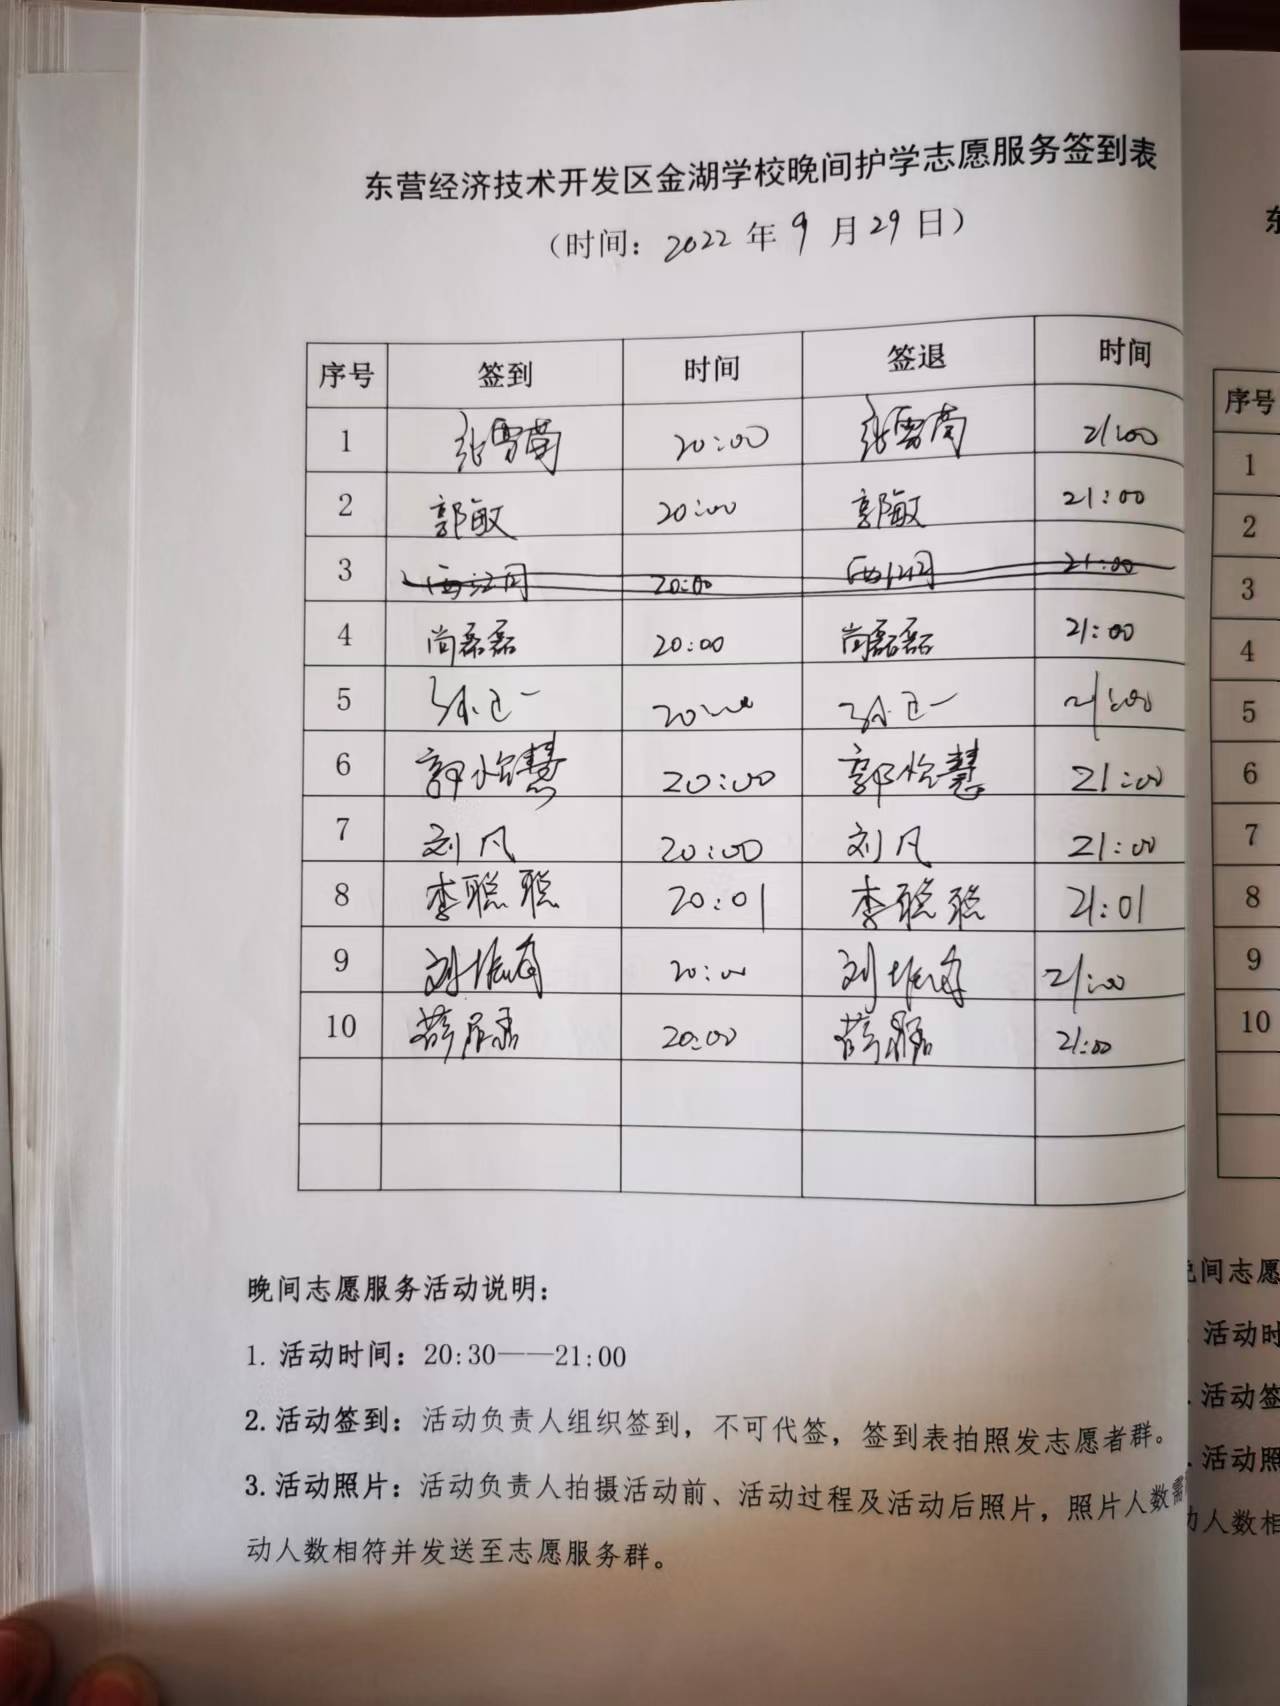 东营经济技术开发区金湖学校晚间护学志愿服务签到表
（时间：2022年9月29日）
序号 签到 时间 签退 时间
1 张雪菊 20:00 张雪菊 21:00
2 郭敏 20:00 郭敏 21:00
3 20:00 21:00
4 尚磊磊 20:00 尚磊磊 21:00
5 孙正一 20:00 孙正一 21:00
6 郭怡慧 20:00 郭怡慧 21:00
7 刘凡 20:00 刘凡 21:00
8 李聪聪 20:01 李聪聪 21:01
9 刘 20:00 刘 21:00
10 薛 20:00 薛 21:00
晚间志愿服务活动说明：
1. 活动时间：20:30——21:00
2. 活动签到：活动负责人组织签到，不可代签，签到表拍照发志愿者群。
3. 活动照片：活动负责人拍摄活动前、活动过程及活动后照片，照片人数需
动人数相符并发送至志愿服务群。
东
序号
1
2
3
4
5
6
7
8
9
10
间志愿
活动时
活动签
活动照
人数相